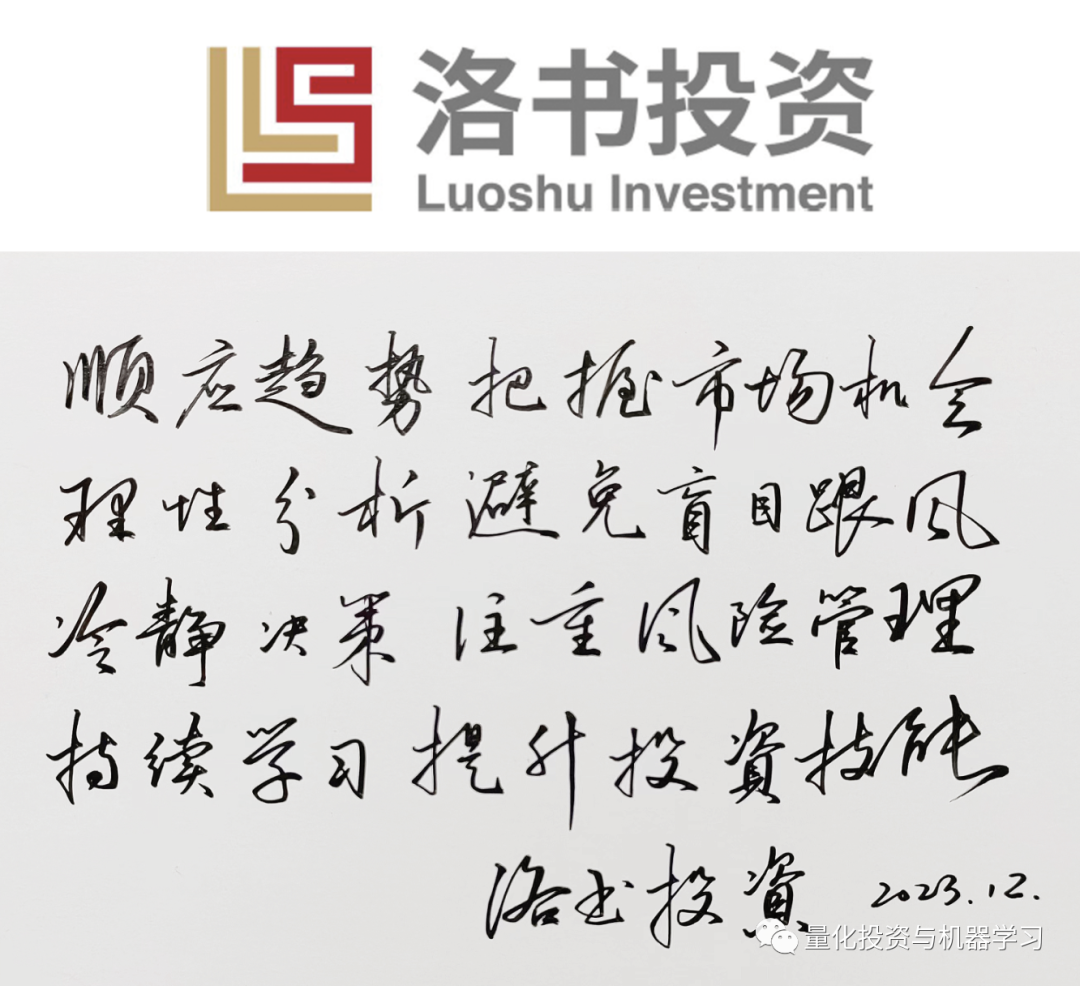 洛书投资
Luoshu Investment
顺应趋势 把握市场机会
理性分析 避免盲目跟风
冷静决策 注重风险管理
持续学习 提升投資技能
洛书投資 2023.12.
量化投资与机器学习